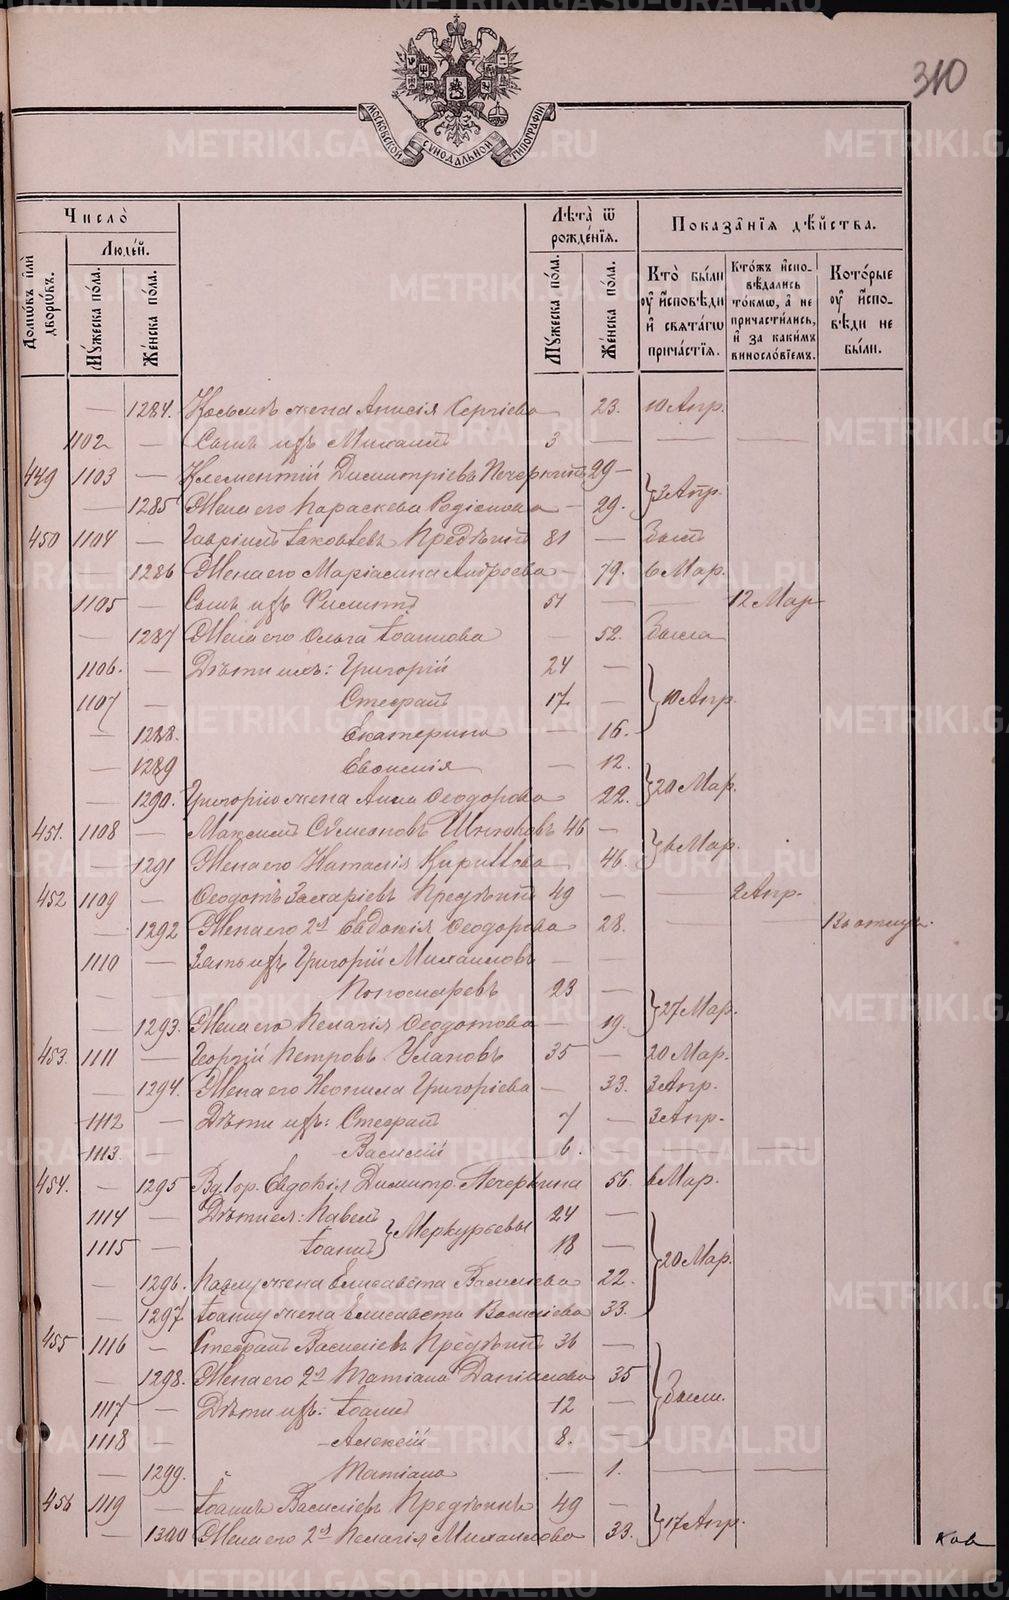 310
МОСКОВСКОЙ СѴНОДАЛЬНОЙ ТИПОГРАФІИ
METRIKI.GASO-URAL.RU
Число̀
Лѣта̀ ѿ рожде́нія.
Показа̑нія дѣ́йства.
Домѡ́въ и҆лѝ дворѡ́въ.
Люде́й.
Мꙋ́жеска по́ла.
Же́нска по́ла.
Мꙋ́жеска по́ла.
Же́нска по́ла.
Кто̀ бы́ли ᲂу҆ и҆́сповѣди и҆ свѧта́гѡ прича́стїѧ.
Кто́жъ и҆спо­вѣ́дались то́кмѡ, а҆ не причасти́лись, и҆ за каки́мъ виносло́віемъ.
Кото́рые ᲂу҆ и҆́спо­вѣди не бы́ли.
— 1284. Косьмѣ жена Анисія Сергіева 23. 10 Апр.
1102 — Сынъ ихъ Михаилъ 3 — —
449 1103 — Климентій Димитріевъ Печеркинъ 29 —
1285 Жена его Параскева Родіонова — 29. } 3 Апр.
450 1104 — Гавріилъ Іаковлевъ 81 — Былъ
— 1286 Жена его Маріамна Андреева — 79. 6 Мар.
1105 — Сынъ ихъ Филиппъ 51 — — 12 Мар.
— 1287 Жена его Ольга Іоаннова — 52. Была
1106. — Дѣти ихъ: Григорій 24 —
1107 — Стефанъ 17. — } 10 Апр.
— 1288. Екатерина — 16.
— 1289 Евѳимія — 12.
— 1290. Григорію жена Анна Ѳеодорова 22. } 20 Мар.
451. 1108 — Максимъ Сѵмеоновъ 46 —
— 1291 Жена его Наталія Кириллова 46. } 6 Мар.
452 1109 — Ѳеодотъ Захаріевъ 49 — — 2 Апр.
— 1292 Жена его 2я Евдокія Ѳеодорова 28. — Въ отлуч.
1110 — Зять ихъ Григорій Михаиловъ — —
— — Пономаревъ 23 —
— 1293. Жена его Пелагія Ѳеодотова — 19. } 27 Мар.
453. 1111 — Георгій Петровъ Улановъ 35 — 20 Мар.
— 1294. Жена его Неонила Григоріева — 33. 3 Апр.
1112 — Дѣти ихъ: Стефанъ 7 — 3 Апр.
1113. — Василій 6. — — —
454. — 1295 Евдокія Димитр. Печеркина 56. 6 Мар.
1114 — Дѣти ея: Павелъ } Меркурьевы 24 —
1115 — Іоаннъ 18 —
— 1296. Павлу жена Елисавета Васильева 22. } 20 Мар.
— 1297. Іоанну жена Елисавета Васильева 33.
455 1116 — Стефанъ Васильевъ 36 —
— 1298. Жена его 2я Татіана Даніилова 35 } Были.
1117 — Дѣти ихъ: Іоаннъ 12 —
1118 — Алексій 8. —
— 1299. Татіана — 1. — —
456 1119 — Іоаннъ Васильевъ 49 —
— 1300 Жена его 2я Пелагія Михаилова 33. } 17 Апр.